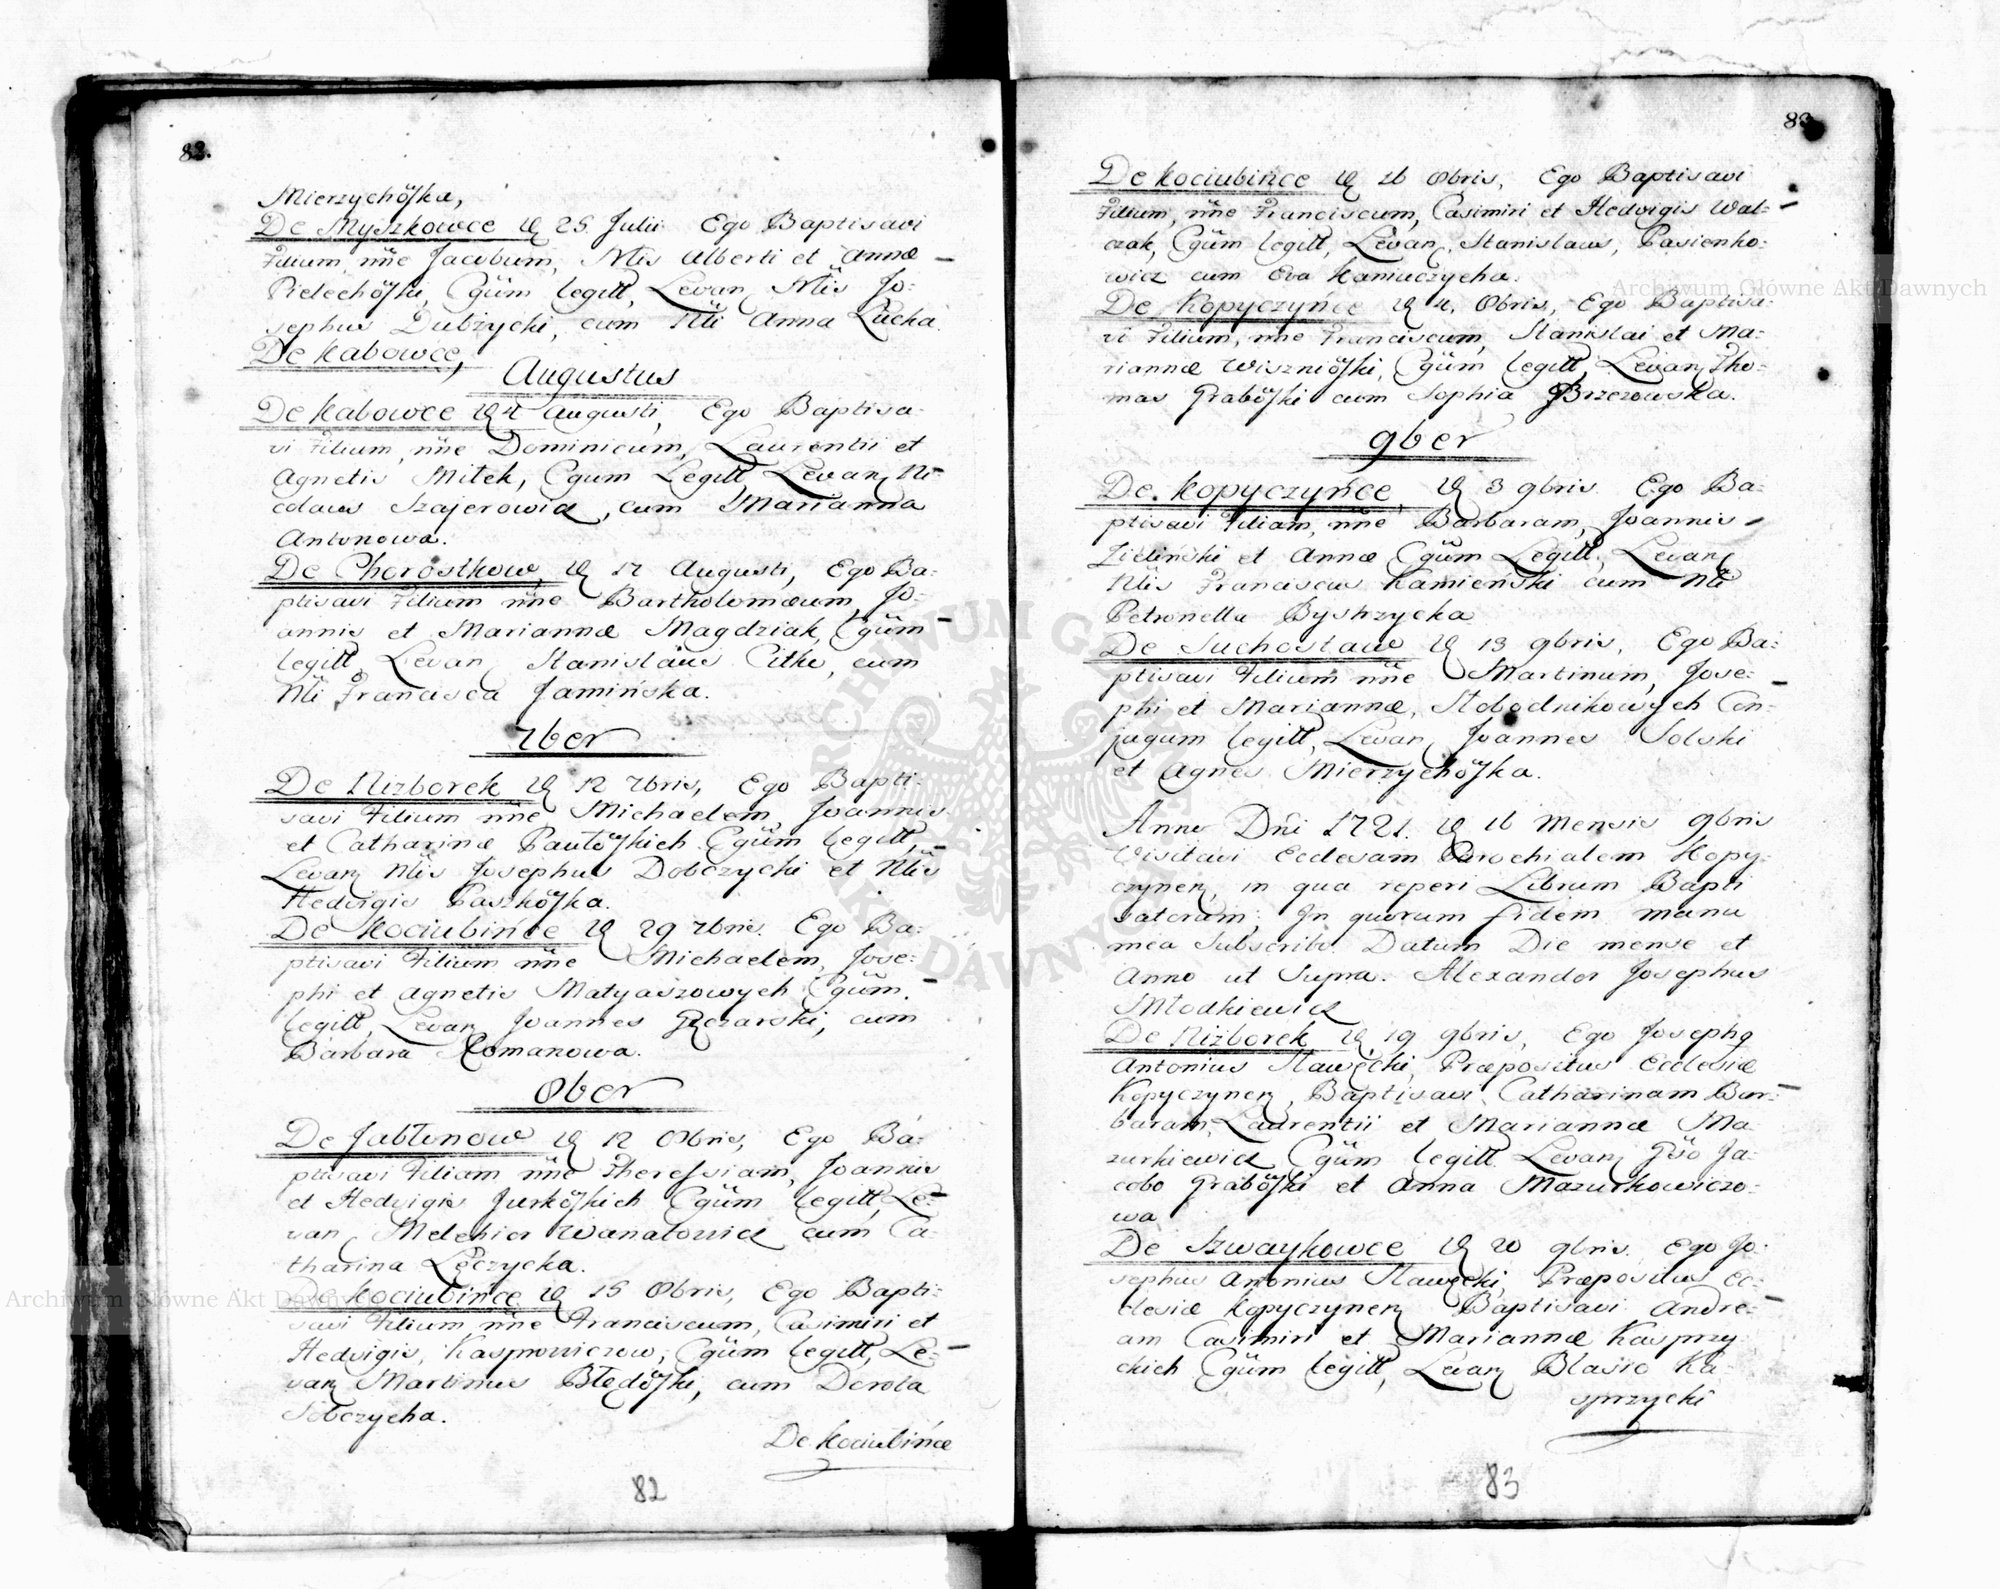 82.
Mierzychőska,
De Myszkowce 25 Julii Ego Baptisavi
Filium, nñe Jacobum, Mis Alberti et Annæ
Pielechőski, Cgüm legitt, Levan Mis Jo:
sephus Dubżycki, cum Nli Anna Łucka.
De kabowce,
Augustus
De kabowce 4 Augusti, Ego Baptisa:
vi Filium, nñe Dominicum, Laurentii et
Agnetis Mitek, Cgum Legitt Levan Ni=
colaus Szajerowicz, cum Marianna
Antonowa.
De Chorostkow, 17 Augusti, Ego Ba:
ptisavi Filium nñe Bartholomæum, Jo:
annis et Mariannæ Magdziak, Cgüm
legitt, Levan Stanislaus Citko, cum
Nli Francisca Jamińska.
7ber
De Nizborek 12 7bris, Ego Bapti:
savi Filium nñe Michaelem, Joannis
et Catharinæ Pautőskich Cgüm legitt,
Levan Nlis Josephus Dobczycki et Nlis
Hedvigis Paszkőska.
De Kociubińce 29 7bris. Ego Ba:
ptisavi Filium nñe Michaelem, Jose:
phi et Agnetis Matyaszowych Cgüm.
legitt, Levan Joannes Ręczarski, cum
Barbara Romanowa.
8ber
De Jabłonow 12 8bris, Ego Ba:
ptisavi Filiam nñe Theressiam, Joannis
et Hedvigis Jurkőskich Cgüm legitt, Le=
van Melchior Wanatowicz cum Ca:
tharina Łęczycka.
De kociubińce 15 8bris, Ego Bapti:
savi Filium nñe Franciscum, Casimiri et
Hedvigis, Kasprowiczow, Cgüm legitt, Le=
van Martinus Błędőski, cum Dorota
Sobczycha.
De kociubińce
82
83
De kociubińce 26 8bris, Ego Baptisavi
Filium, nñe Franciscum, Casimiri et Hedvigis Wal=
czak, Cgüm legitt, Levan, Stanislaus, Pasienko:
wicz cum Eva kaniuczycha.
De Kopyczyńce 4. 8bris, Ego Baptisa:
vi Filium, nñe Franciscum, Stanislai et Ma:
riannæ Wiszniőski, Cgüm legitt, Levan Tho:
mas Grabőski cum Sophia Brzezowska.
9ber
De. Kopyczyńce, 3 9bris. Ego Ba:
ptisavi Filiam, nñe Barbaram, Joannis
Zieliński et Annæ Cgüm Legitt. Levan
Nlis Franciscus Kamieński cum Nli
Petronella Bystrzycka
De Suchostaw 13 9bris, Ego Ba:
ptisavi Filium nñe Martinum, Jose:
phi et Mariannæ, Słobodnikowych Con:
jugum legitt, Levan Joannes Solski
et Agnes Mierzychőska.
Anno Dñi 1721. 16 Mensis 9bris
Visitavi Ecclesam Parochialem Kopy:
czynen, in qua reperi Librum Bapti
satorum; In quorum fidem manu
mea Subscribo. Datum Die mense et
Anno ut Supra. Alexander Josephus
Młodkiewicz
De Niżborek, 19 9bris, Ego Joseph9
Antonius Sławęcki, Præpositus Ecclesiæ
Kopyczynen, Baptisavi Catharinam Bar:
baram, Laurentii et Mariannæ Ma
zurkiewicz Cgüm legitt. Levan Gőso Ja:
cobo Grabőski et Anna Mazurkowiczo:
wa
De Szwaykowce 20 9bris. Ego Jo:
sephus Antonius Sławęcki, Præpositus Ec:
clesiæ Kopyczynen Baptisavi Andre:
am Casimiri et Mariannæ Kasprzy
ckich Cgüm legitt, Levan Blasio Ka:
sprzycki
83
Archiwum Główne Akt Dawnych
Archiwum Główne Akt Dawnych
ARCHIWUM GŁÓWNE AKT DAWNYCH